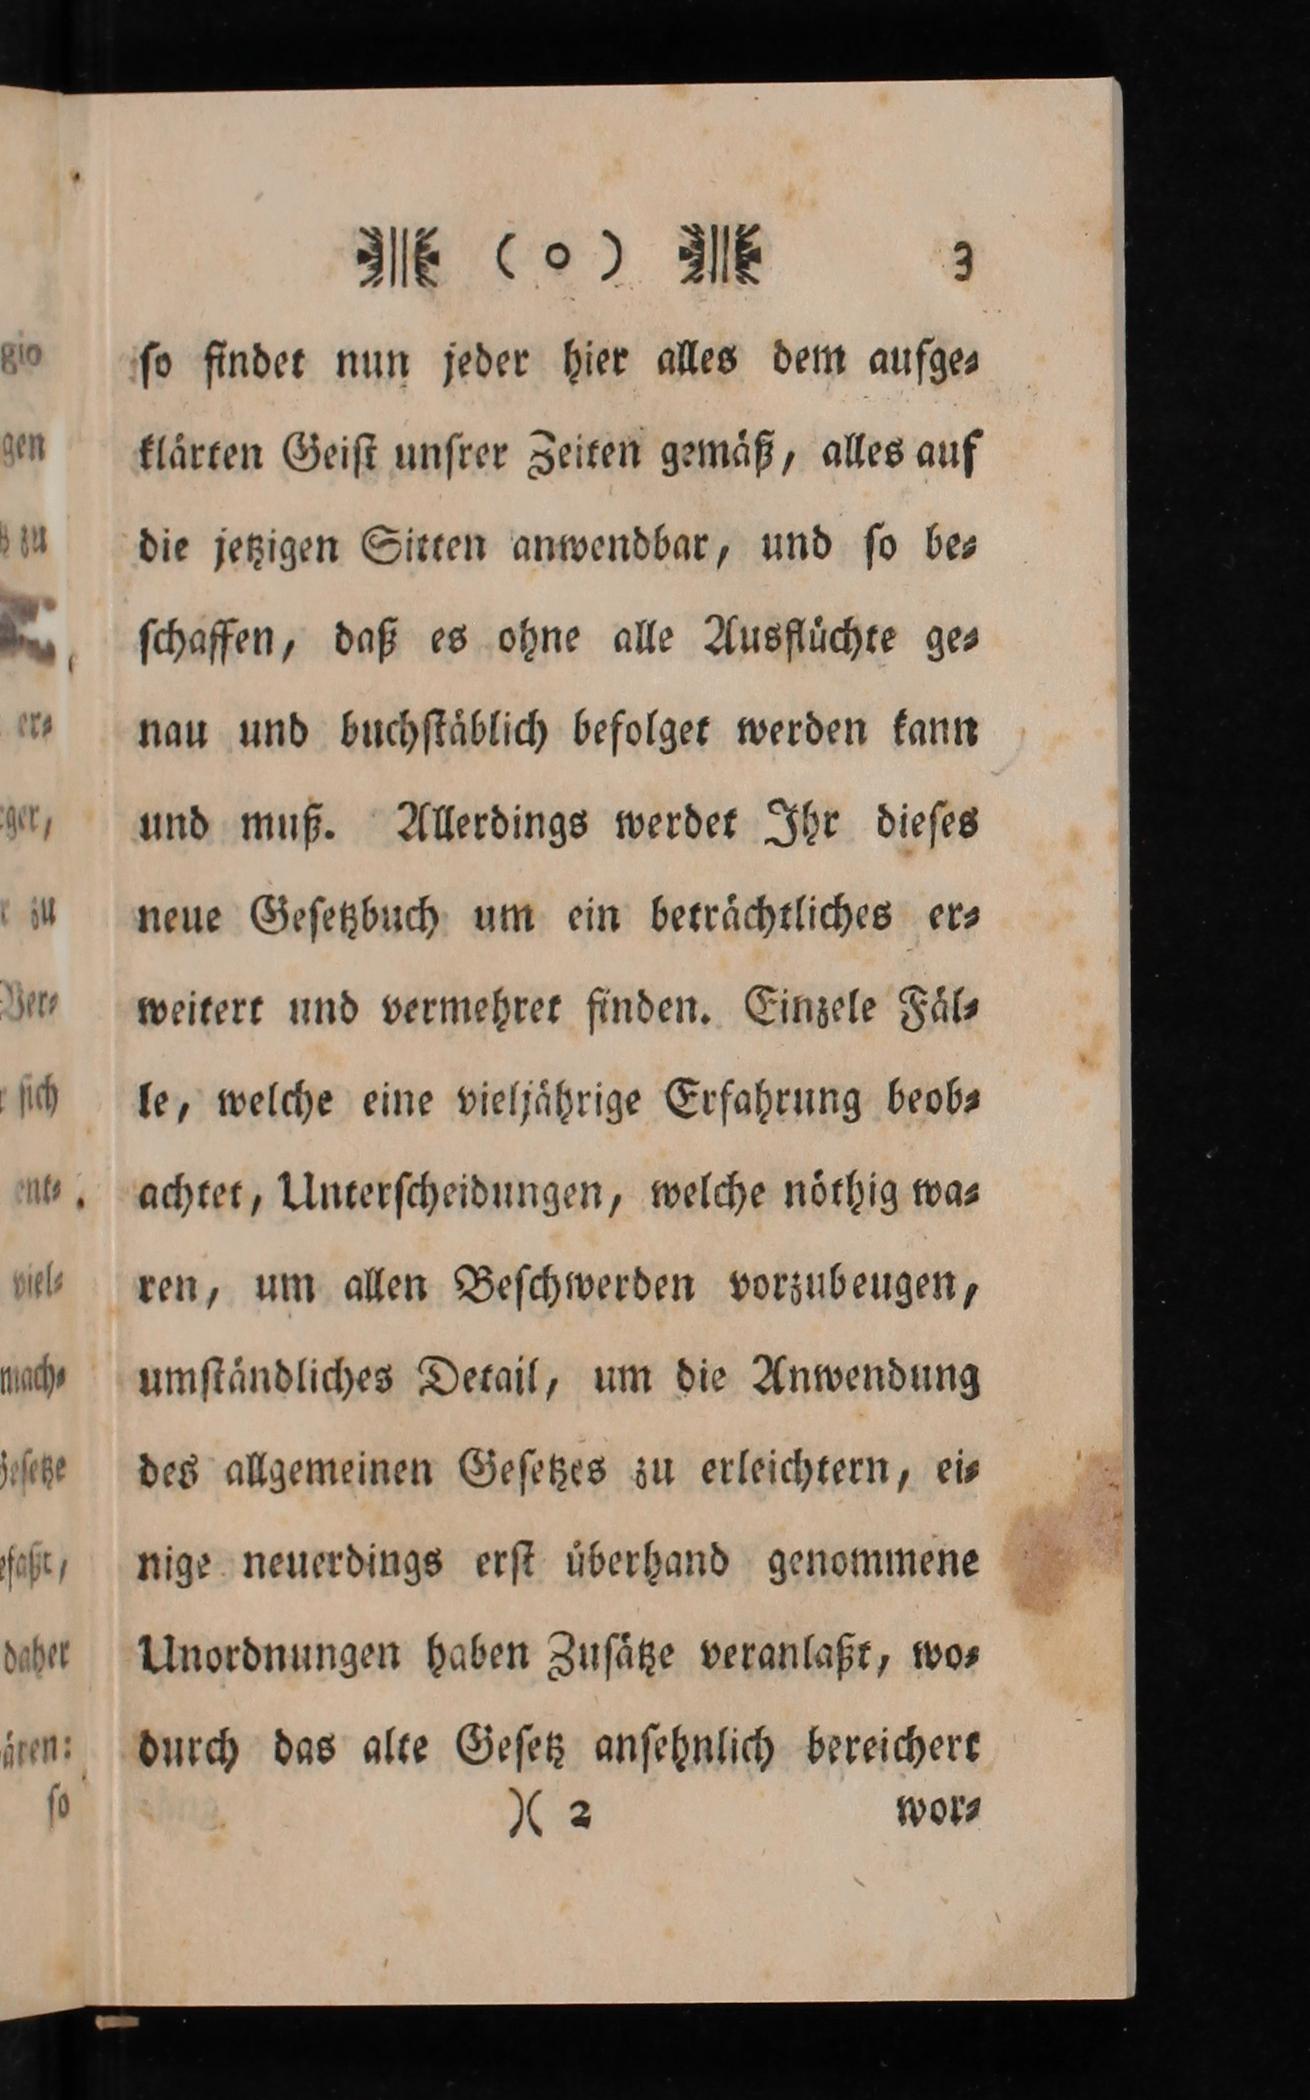 ( o ) 3
so findet nun jeder hier alles dem aufge⸗
klärten Geist unsrer Zeiten gemäß, alles auf
die jetzigen Sitten anwendbar, und so be⸗
schaffen, daß es ohne alle Ausflüchte ge⸗
nau und buchstäblich befolget werden kann
und muß. Allerdings werdet Ihr dieses
neue Gesetzbuch um ein beträchtliches er⸗
weitert und vermehret finden. Einzele Fäl⸗
le, welche eine vieljährige Erfahrung beob⸗
achtet, Unterscheidungen, welche nöthig wa⸗
ren, um allen Beschwerden vorzubeugen,
umständliches Detail, um die Anwendung
des allgemeinen Gesetzes zu erleichtern, ei⸗
nige neuerdings erst überhand genommene
Unordnungen haben Zusätze veranlaßt, wo⸗
durch das alte Gesetz ansehnlich bereichert
)( 2 wor⸗